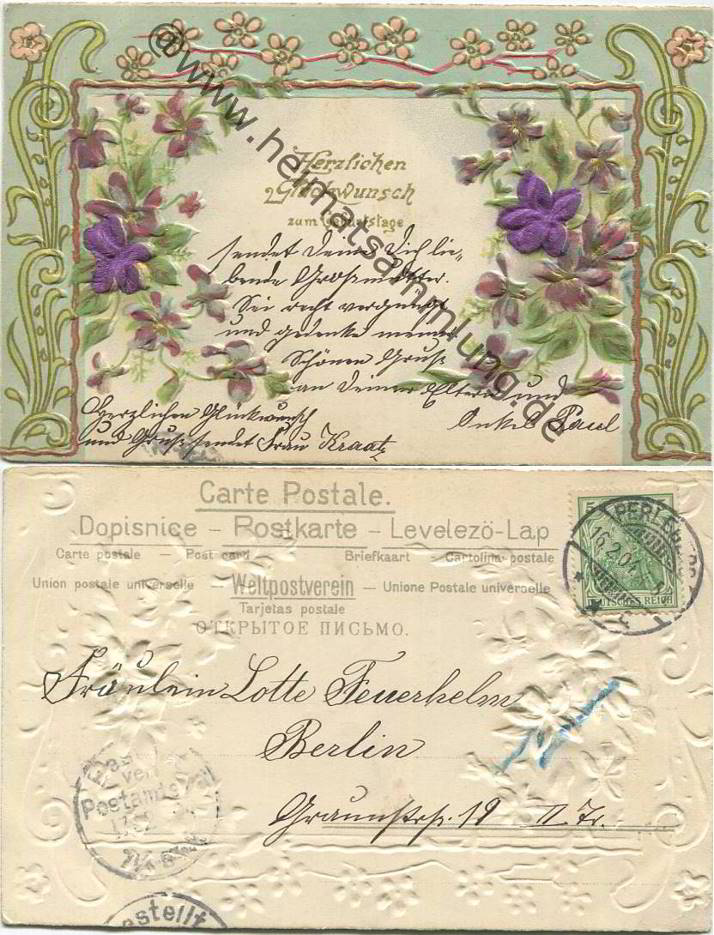 @www.heimatsammlung.de
Herzlichen
Glückwunsch
zum Geburtstage
sendet Deine Dich lie-
bende Großmutter.
Sei recht vergnügt
und gedenke meiner
Schönen Gruß
an Deine Eltern und
Onkel Paul
Herzlichen Glückwunsch
und Gruss sendet Frau Kraatz
Carte Postale.
Dopisnice – Postkarte – Levelező-Lap
Carte postale – Post card – Briefkaart – Cartolina postale
Union postale universelle – Weltpostverein – Unione Postale universelle
Tarjetas postale
ОТКРЫТОЕ ПИСЬМО.
5
DEUTSCHES REICH
PERLEBERG
16.2.04
Fräulein Lotte Feuerhelm
Berlin
Graunstr. 19 II Tr.
Postamt
Bestellt